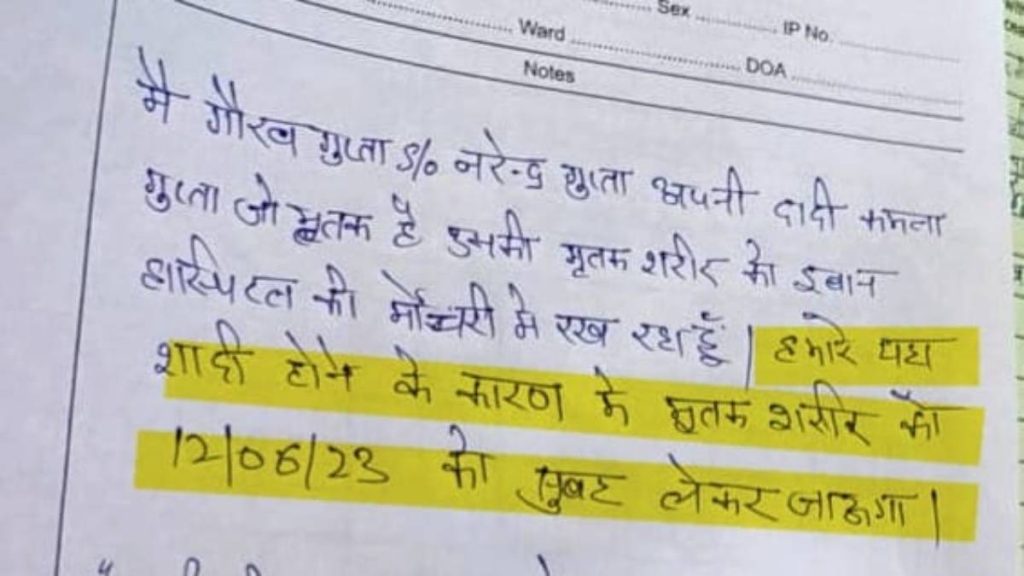 Sex .......... IP No. ..........
.......... Ward .......... DOA ..........
Notes
मै गौरव गुप्ता S/o नरेन्द्र गुप्ता अपनी दादी कमला
गुप्ता जो मृतक है उसकी मृतक शरीर को इवान
हास्पिटल की मौच्चरी मे रख रहा हूँ | हमारे यहा
शादी होने के कारण मै मृतक शरीर को
12/06/23 को सुबह लेकर जाऊगा |